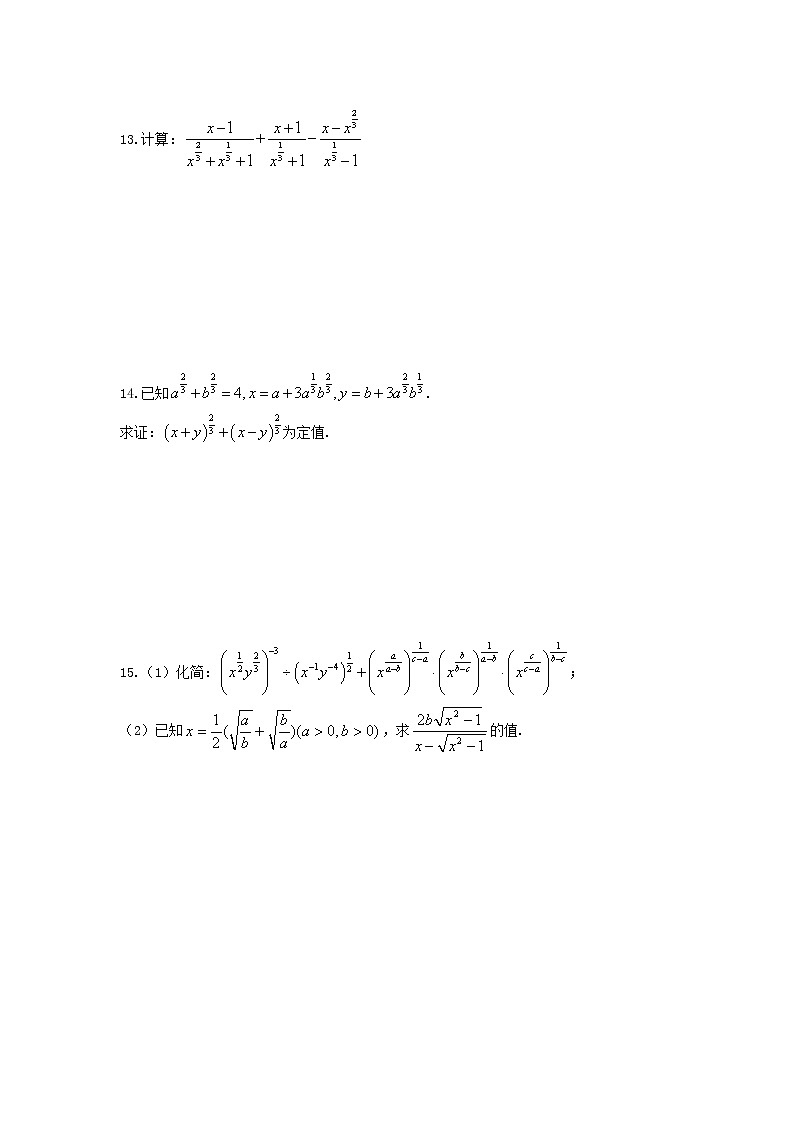 13.计算: $\frac{x-1}{x^{\frac{2}{3}}+x^{\frac{1}{3}}+1}+\frac{x+1}{x^{\frac{1}{3}}+1}-\frac{x-x^{\frac{2}{3}}}{x^{\frac{1}{3}}-1}$
14.已知$a^{\frac{2}{3}}+b^{\frac{2}{3}}=4, x=a+3a^{\frac{1}{3}}b^{\frac{2}{3}}, y=b+3a^{\frac{2}{3}}b^{\frac{1}{3}}$.
求证: $(x+y)^{\frac{2}{3}}+(x-y)^{\frac{2}{3}}$为定值.
15.(1)化简: $\left(x^{\frac{1}{2}}y^{\frac{2}{3}}\right)^{-3}\div\left(x^{-1}y^{-4}\right)^{\frac{1}{2}}+\left(x^{\frac{a}{a-b}}\right)^{\frac{1}{c-a}}\cdot\left(x^{\frac{b}{b-c}}\right)^{\frac{1}{a-b}}\cdot\left(x^{\frac{c}{c-a}}\right)^{\frac{1}{b-c}}$;
(2)已知$x=\frac{1}{2}(\sqrt{\frac{a}{b}}+\sqrt{\frac{b}{a}})(a>0,b>0)$,求$\frac{2b\sqrt{x^2-1}}{x-\sqrt{x^2-1}}$的值.